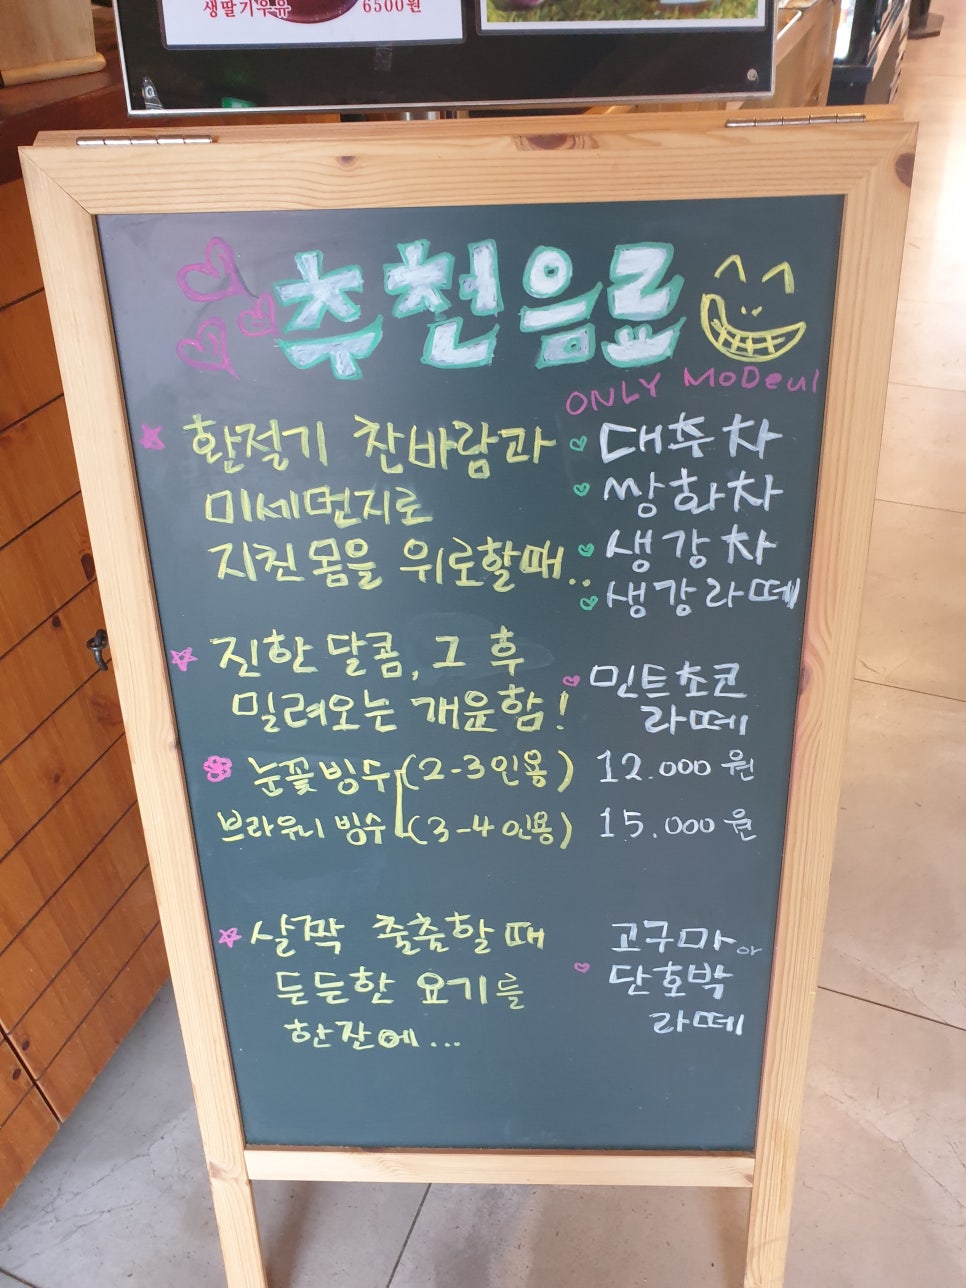 생딸기우유 6500원
추천음료
ONLY MoDeul
환절기 찬바람과
미세먼지로
지친 몸을 위로할때..
대추차
쌍화차
생강차
생강라떼
진한 달콤, 그 후
밀려오는 개운함!
민트초코
라떼
눈꽃빙수 (2-3인용) 12.000원
브라우니 빙수 (3-4인용) 15.000원
살짝 출출할때
든든한 요기를
한잔에...
고구마 or
단호박
라떼